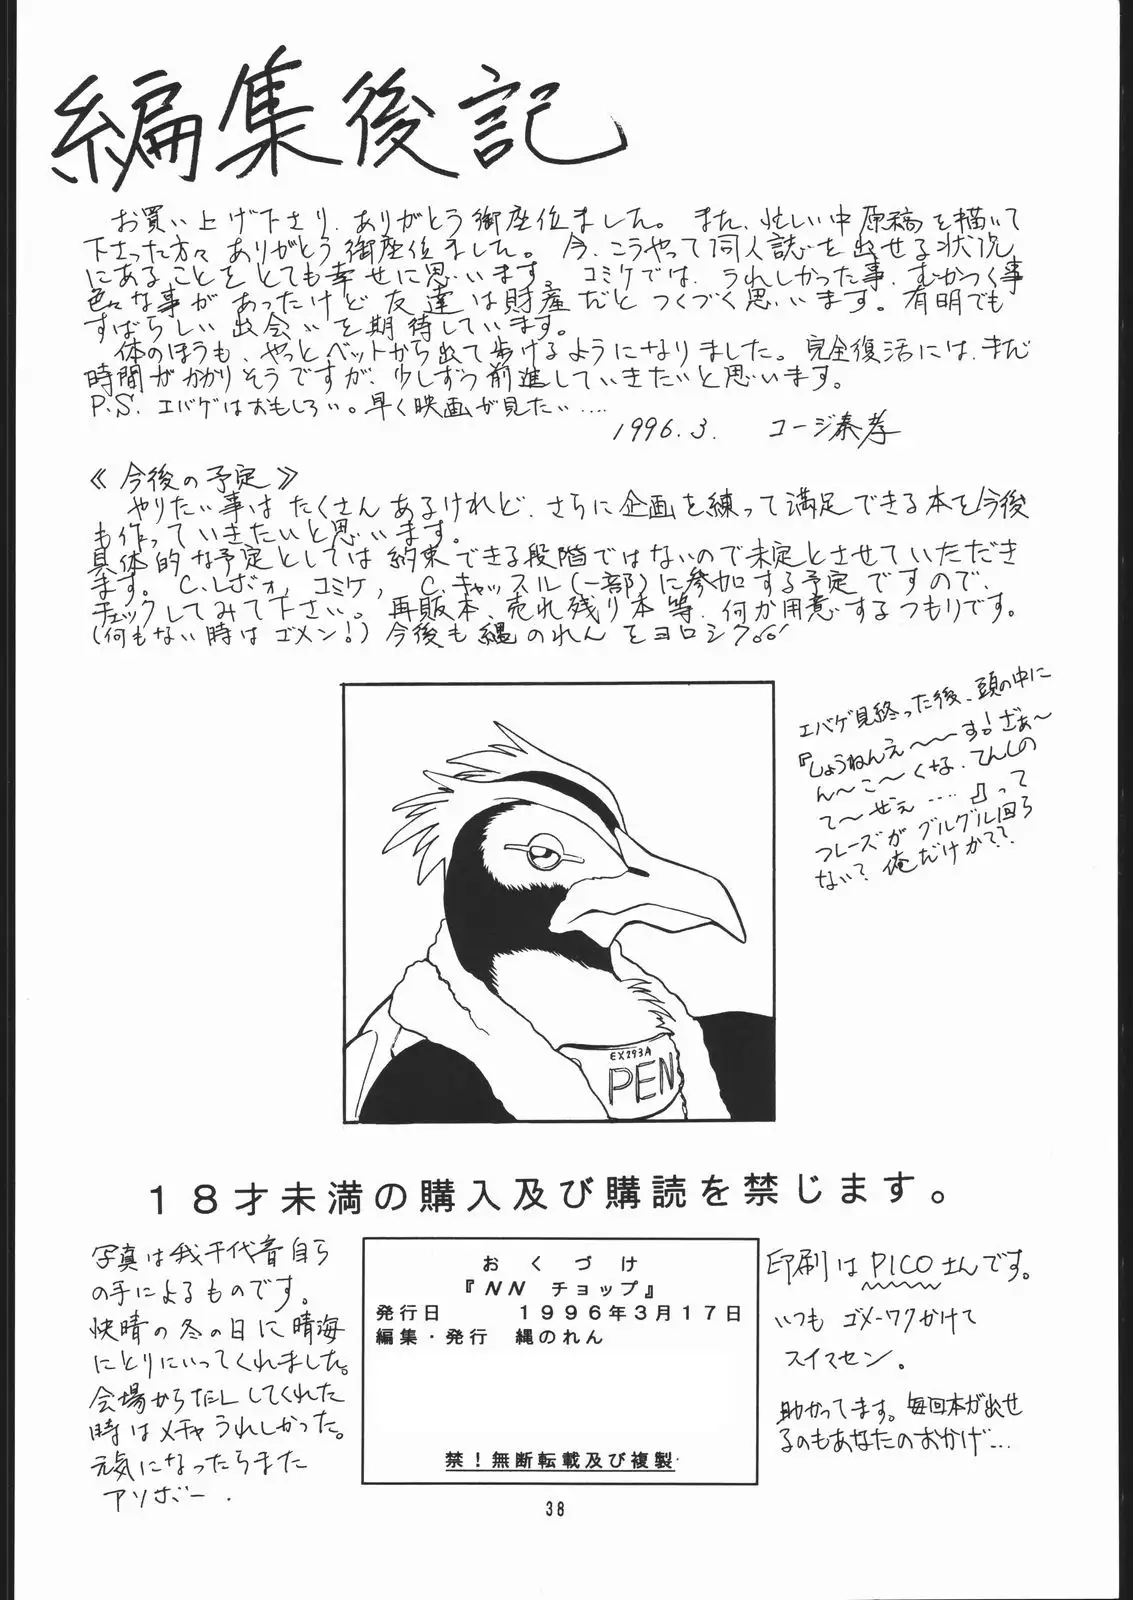 編集後記
お買い上げ下さり、ありがとう御座位ました。また、忙しい中原稿を描いて
下さった方々ありがとう御座位ました。今、こうやって同人誌を出せる状況
にあることをとても幸せに思います。コミケでは、うれしかった事、むかつく事
色々な事があったけど友達は財産だとつくづく思います。有明でも
すばらしい出会いを期待しています。
体のほうも、やっとベットから出て歩けるようになりました。完全復活には、まだ
時間がかかりそうですが、少しずつ前進していきたいと思います。
P.S. エバゲはおもしろい。早く映画が見たい....
1996.3. コージ泰孝
《今後の予定》
やりたい事はたくさんあるけれど、さらに企画を練って満足できる本を今後
も作っていきたいと思います。
具体的な予定としては約束できる段階ではないので未定とさせていただき
ます。C.レボォ,コミケ, C.キャッスル(一部)に参加する予定ですので、
チェックしてみて下さい。再販本、売れ残り本等、何か用意するつもりです。
(何もない時はゴメン!)今後も縄のれんをヨロシク。
エバゲ見終った後、頭の中に
『しょうねんえ〜〜〜す!ざぁ〜
ん〜こ〜くな、てんしの
て〜ぜぇ....』って
フレーズがグルグル回ら
ない?俺だけか??
EX293A
PEN
18才未満の購入及び購読を禁じます。
写真は我千代音自ら
の手によるものです。
快晴の冬の日に晴海
にとりにいってくれました。
会場からだししてくれた
時はメチャうれしかった。
元気になったらまた
アソボー.
おくづけ
『NN チョップ』
発行日 1996年3月17日
編集・発行 縄のれん
禁!無断転載及び複製
印刷はPICOさんです。
いつも ゴメーワクかけて
スイマセン。
助かってます。毎回本が出せ
るのもあなたのおかげ...
38